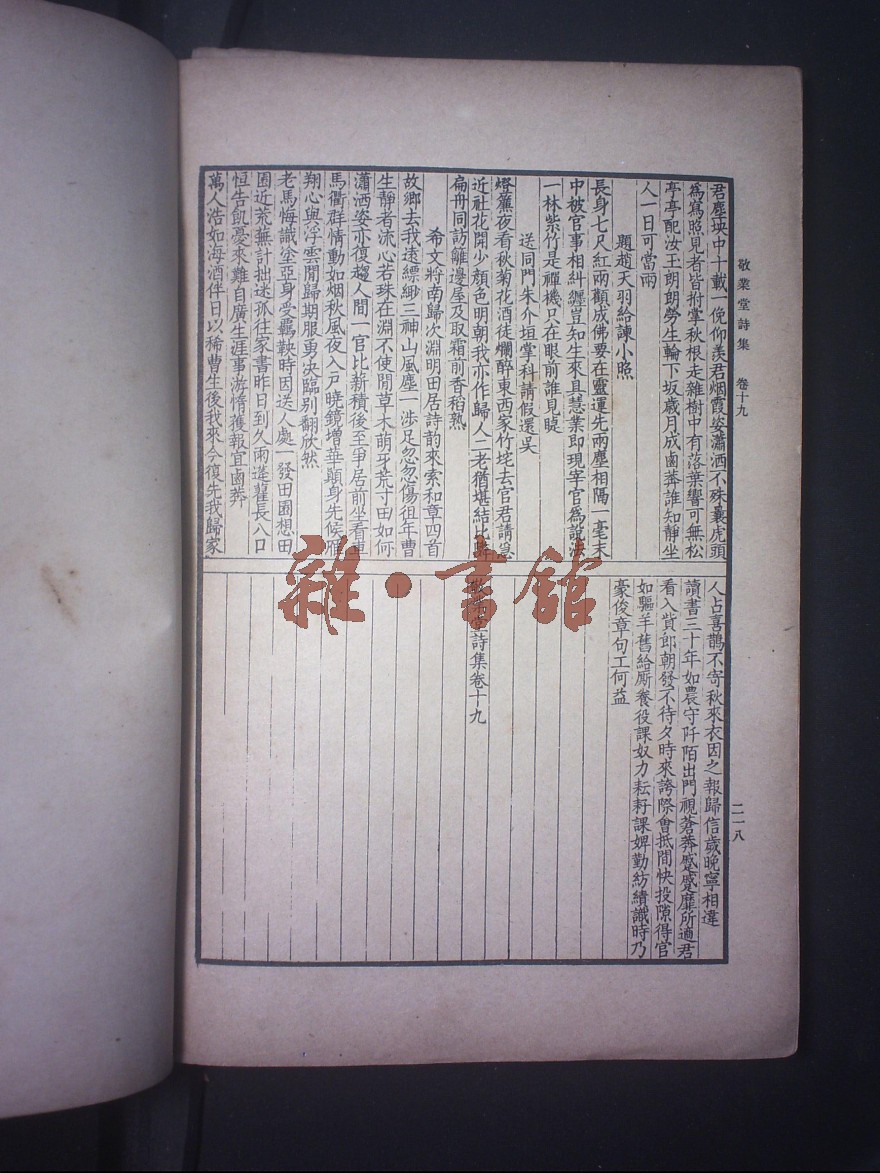 敬業堂詩集　卷十九
二一八
君塵埃中十載一俛仰羨君烟霞姿瀟洒不殊曩虎頭
爲寫照見者皆拊掌秋根走雜樹中有落葉響可無松
亭亭配汝王朗朗勞生輪下坂歲月成鹵莽誰知靜坐
人一日可當兩
題趙天羽給諫小照
長身七尺紅兩顴成佛要在靈運先兩塵相隔一毫末
中被官事相糾纒豈知生來具慧業即現宰官爲說法
一林紫竹是禪機只在眼前誰見睫
送同門朱介垣掌科請假還吳
燈簾夜看秋菊花酒徒爛醉東西家竹垞去官君請急
近社花開少顏色明朝我亦作歸人二老猶堪結比鄰
扁舟同訪雛邊屋及取霜前香稻熟
希文將南歸次淵明田居詩韵來索和章四首
故鄉去我遠縹緲三神山風塵一涉足忽忽傷徂年曹
生靜者流心若珠在淵不使閒草木萌牙荒寸田如何
瀟洒姿亦復趨人間一官比薪積後至爭居前坐看車
馬衢群情動如烟秋風夜入戸曉鏡增華顚身先候雁
翔心與浮雲閒歸期服勇决臨别翻欣然
老馬悔識塗亞身受羈鞅時因送人處一發田園想田
園近荒蕪計拙迷孤往家書昨日到久雨蓬藋長八口
恒告飢憂來難自廣生涯事游惰獲報宜鹵莽
萬人浩如海酒伴日以稀曹生後我來今復先我歸家
人占喜鵲不寄秋來衣因之報歸信歲晚寧相違
讀書三十年如農守阡陌出門視蒼莽蹙蹙靡所適君
看入貲郎朝發不待夕時來誇際會抵間快投隙得官
如驅羊舊給厮養役課奴力耘耔課婢勤紡績識時乃
豪俊章句工何益
敬業堂詩集卷十九
雜·書館